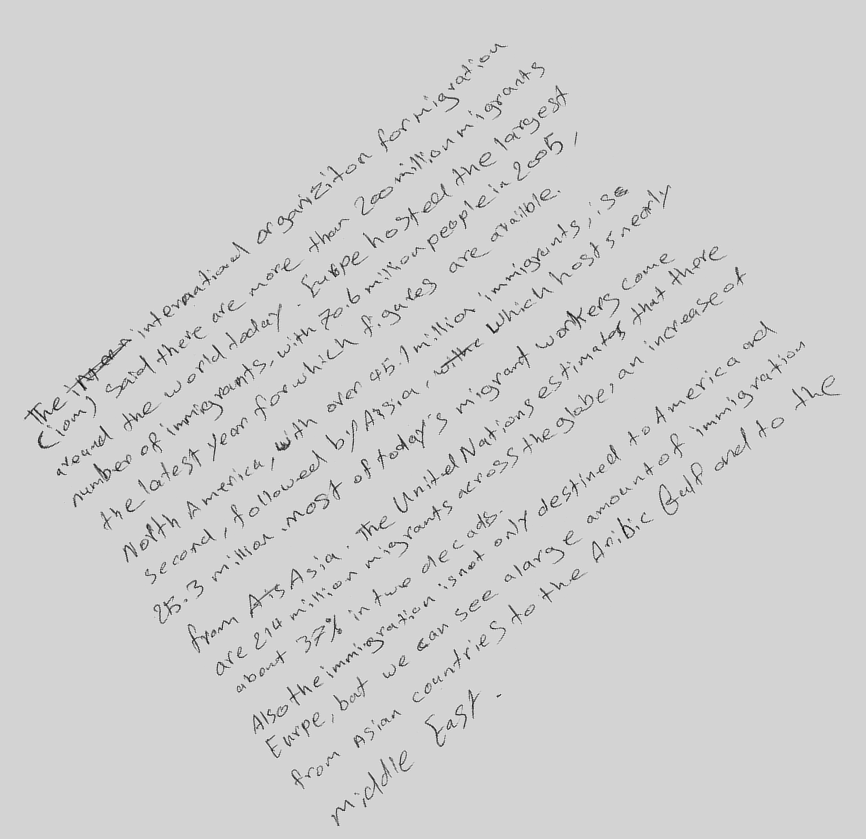 The international organiziton for migration
(iom) said there are more than 200 million migrants
around the world today. Eurpe hosted the largest
number of immigrants, with 70.6 million people in 2005,
the latest year for which figures are availble.
North America, with over 45.1 million immigrants, is
second, followed by Assia, which hosts nearly
25.3 million. most of today's migrant workers come
from Asia. The United Nations estimates that there
are 214 million migrants across the globe, an increase of
about 37% in two decads.
Also the immigration is not only destined to America and
Eurpe, but we can see a large amount of immigration
from Asian countries to the Aribic Gulf and to the
middle East.